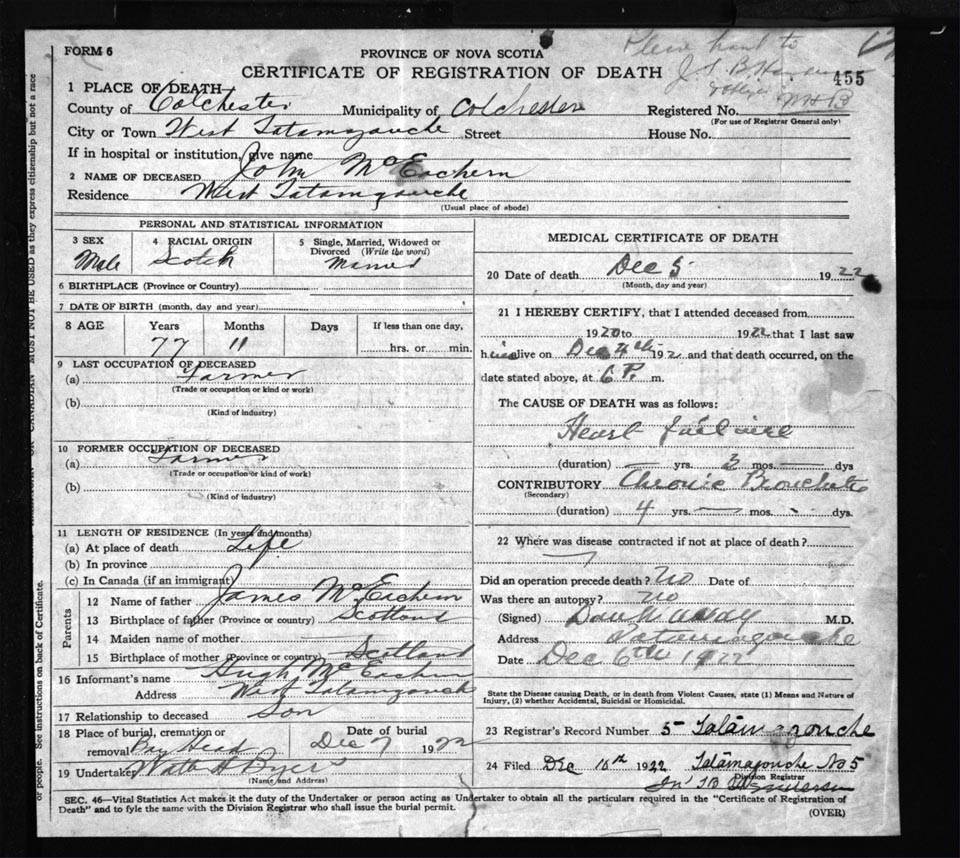 FORM 6
PROVINCE OF NOVA SCOTIA
Please hand to
CERTIFICATE OF REGISTRATION OF DEATH
455
1 PLACE OF DEATH
County of Colchester Municipality of Colchester Registered No.
(For use of Registrar General only)
City or Town West Tatamagouche Street House No.
If in hospital or institution, give name
2 NAME OF DECEASED John McEachern
Residence West Tatamagouche
(Usual place of abode)
PERSONAL AND STATISTICAL INFORMATION
3 SEX Male
4 RACIAL ORIGIN Scotch
5 Single, Married, Widowed or Divorced (Write the word) Married
6 BIRTHPLACE (Province or Country)
7 DATE OF BIRTH (month, day and year)
8 AGE Years Months Days If less than one day,
77 11 hrs. or min.
9 LAST OCCUPATION OF DECEASED
(a) Farmer
(Trade or occupation or kind or work)
(b)
(Kind of industry)
10 FORMER OCCUPATION OF DECEASED
(a) Farmer
(Trade or occupation or kind of work)
(b)
(Kind of industry)
11 LENGTH OF RESIDENCE (In years and months)
(a) At place of death Life
(b) In province
(c) In Canada (if an immigrant)
Parents
12 Name of father James McEachern
13 Birthplace of father (Province or country) Scotland
14 Maiden name of mother
15 Birthplace of mother (Province or country) Scotland
16 Informant's name Hugh McEachern
Address West Tatamagouche
17 Relationship to deceased Son
18 Place of burial, cremation or removal Bay Head
Date of burial Dec 7 1922
19 Undertaker
(Name and Address)
MEDICAL CERTIFICATE OF DEATH
20 Date of death Dec 5 1922
(Month, day and year)
21 I HEREBY CERTIFY, that I attended deceased from
1920 to 1922 that I last saw
him alive on Dec 4th 192 and that death occurred, on the
date stated above, at 6 P. m.
The CAUSE OF DEATH was as follows:
Heart failure
(duration) — yrs. mos. — dys
CONTRIBUTORY Chronic Bronchitis
(Secondary)
(duration) 4 yrs. — mos. - dys.
22 Where was disease contracted if not at place of death?
Did an operation precede death? No Date of
Was there an autopsy? No
(Signed) M.D.
Address Tatamagouche
Date Dec 6th 1922
State the Disease causing Death, or in death from Violent Causes, state (1) Means and Nature of
Injury, (2) whether Accidental, Suicidal or Homicidal.
23 Registrar's Record Number 5 Tatamagouche
24 Filed Dec 10th 1922 Tatamagouche No 5
Division Registrar
SEC. 46—Vital Statistics Act makes it the duty of the Undertaker or person acting as Undertaker to obtain all the particulars required in the "Certificate of Registration of
Death" and to fyle the same with the Division Registrar who shall issue the burial permit.
(OVER)
or people. See instructions on back of Certificate.
MUST NOT BE USED as they express citizenship but not a race